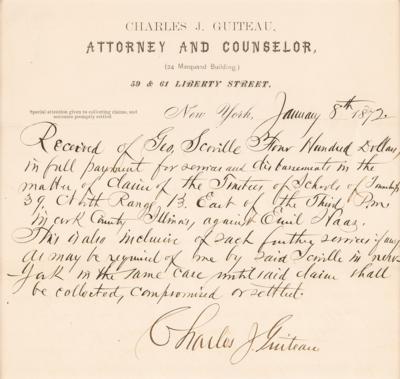 CHARLES J. GUITEAU,
ATTORNEY AND COUNSELOR,
(24 Marquand Building.)
59 & 61 LIBERTY STREET.
Special attention given to collecting claims, and
accounts promptly settled.
New York, January 8th 1872
Received of Geo, Scoville Four Hundred Dollars,
in full payment for services and disbursements in the
matter of claim of the Trustees of Schools of Township
39, North Range 13. East of the Third P.m.
in cook County Illinois, against Emil Haas.
This is also inclusive of such further services if any
as may be required of me by said Scoville in new-
York in the same case until said claim shall
be collected, compromised or settled.
Charles J. Guiteau